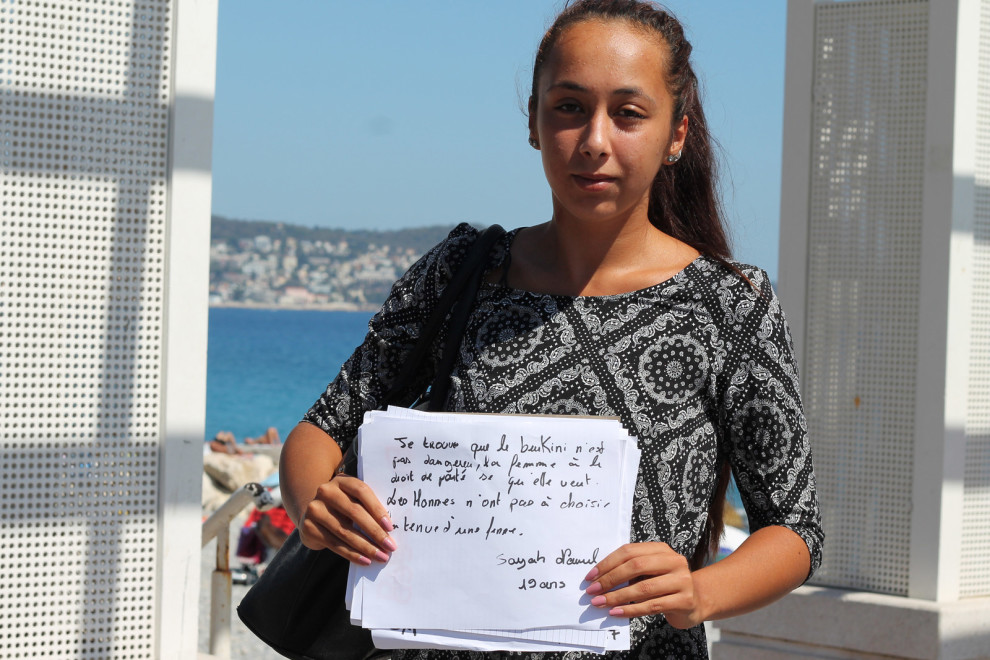 Je trouve que le burkini n'est
pas dangereu, la femme à le
droit de porté se qu'elle veut.
Les Hommes n'ont pas à choisir
la tenue d'une femme.
Sayah
19 ans
7